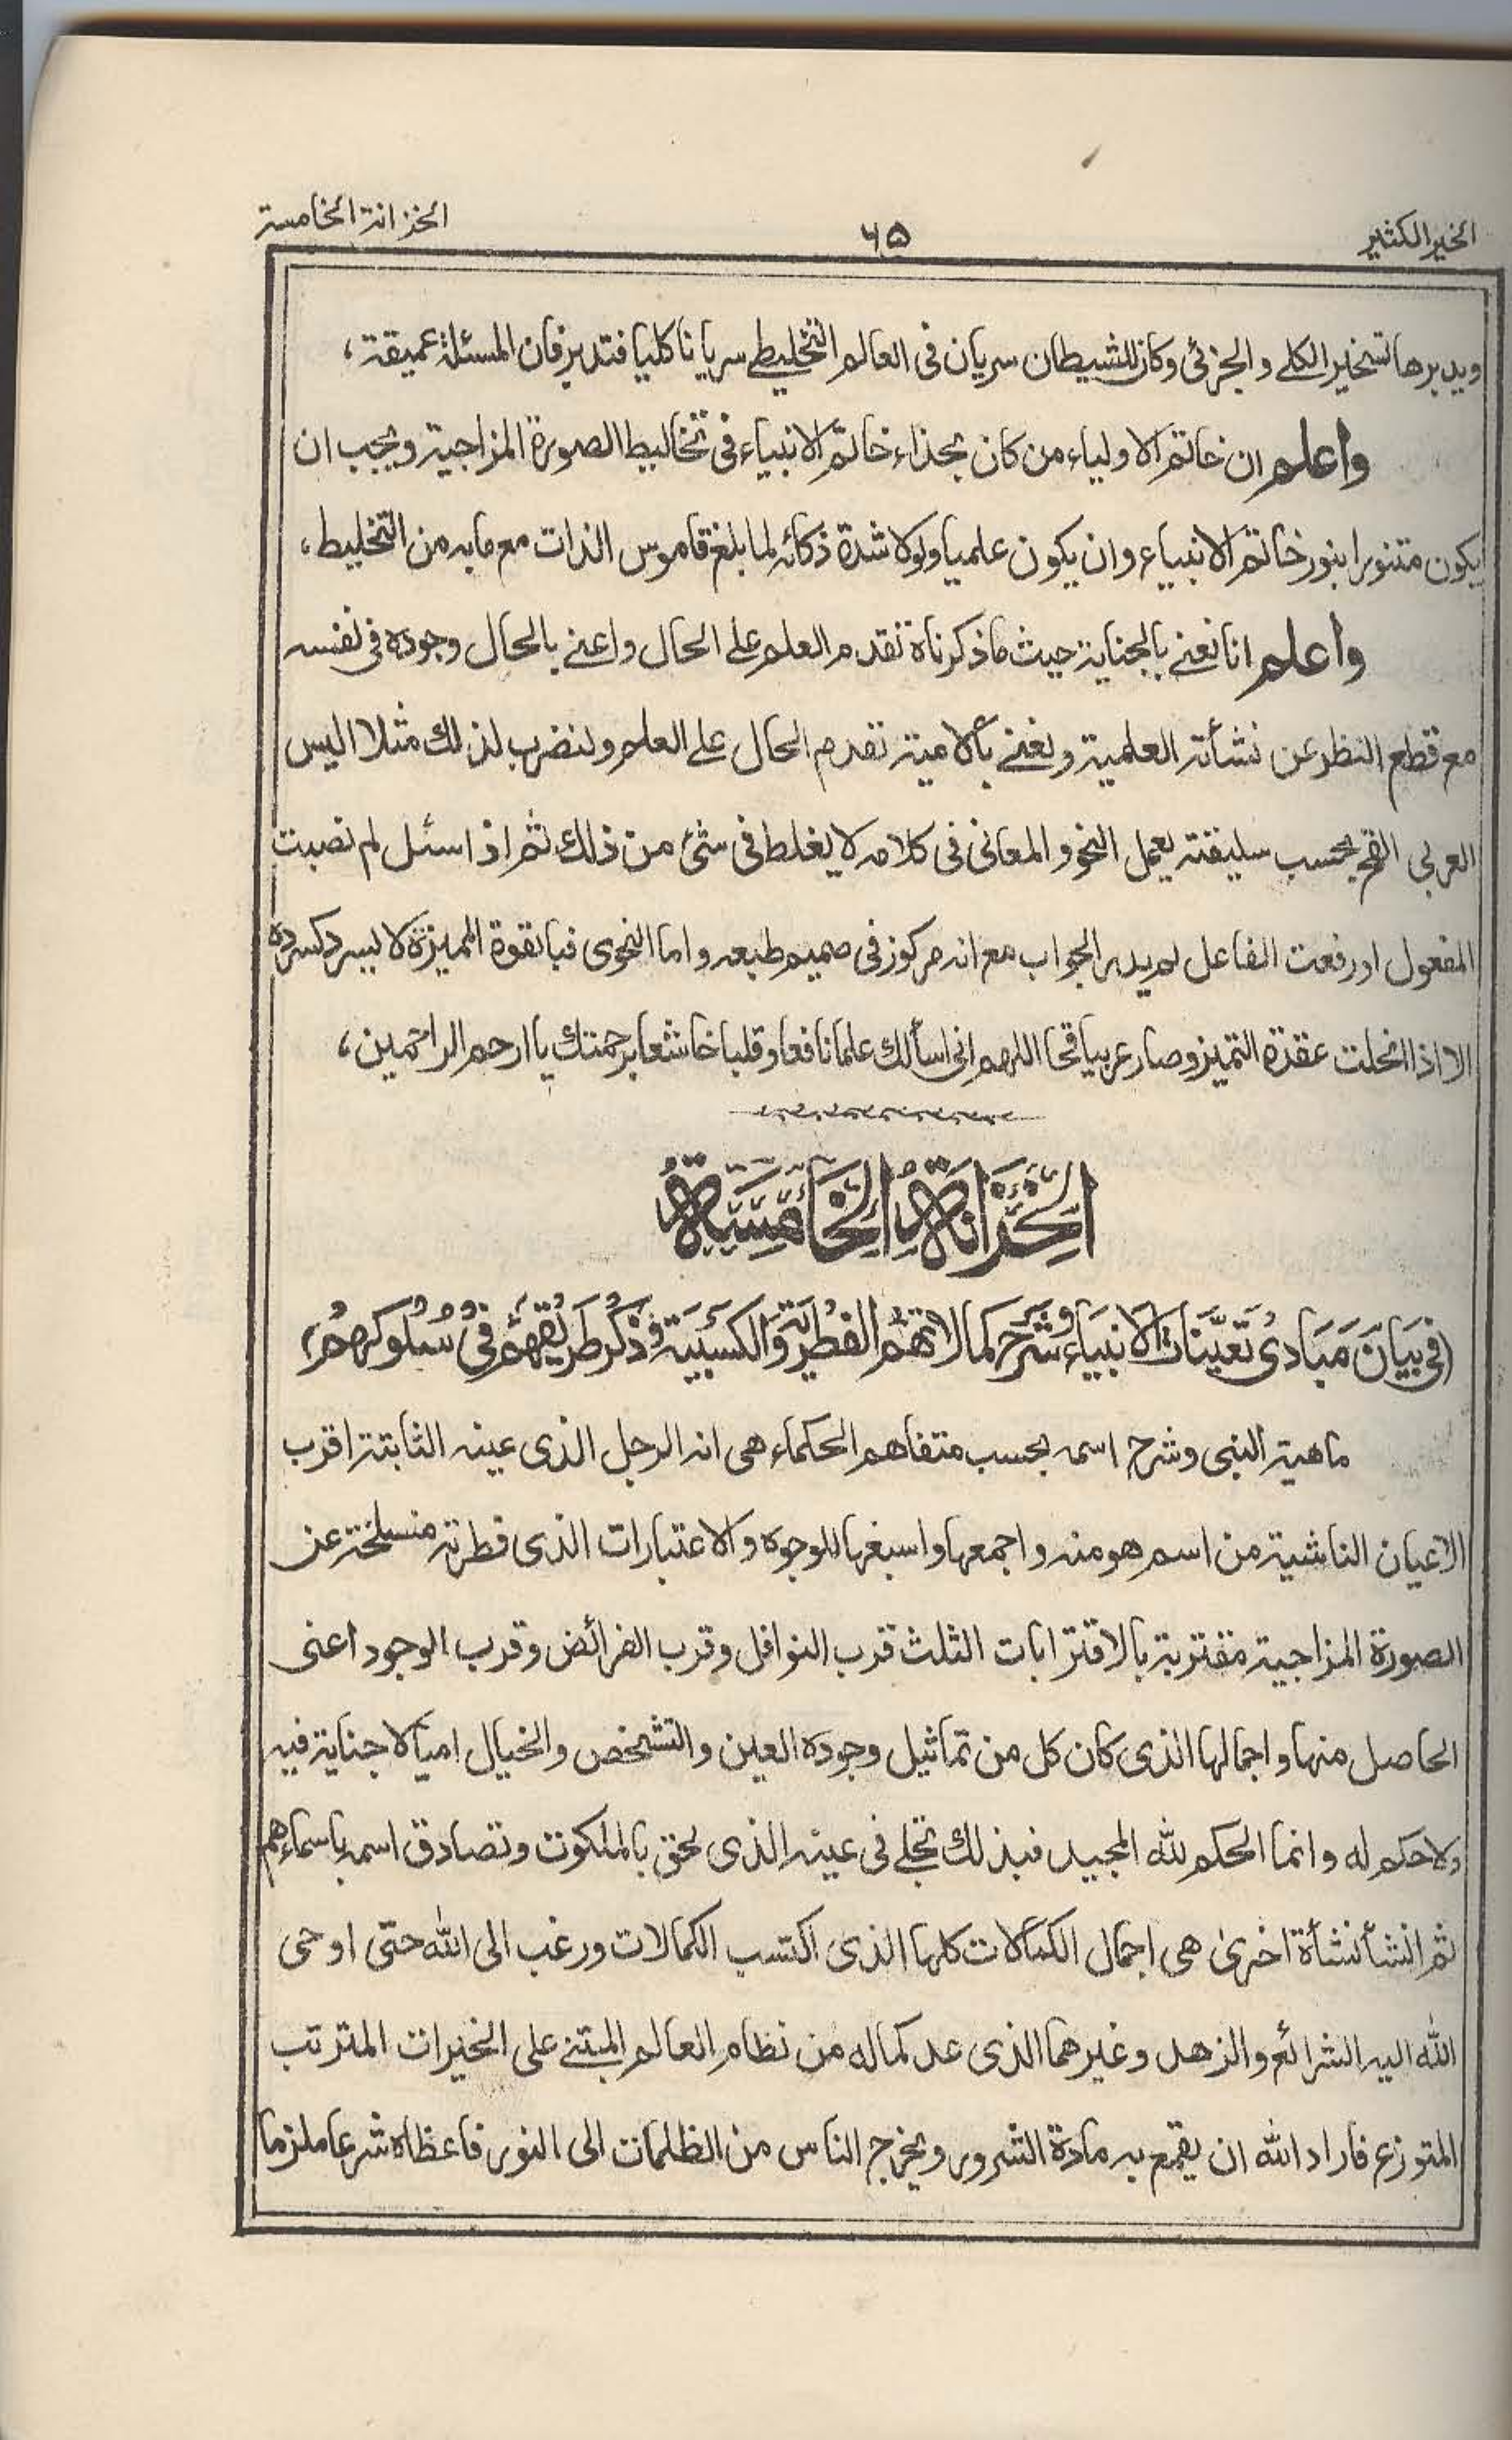 الخير الكثير
٦٥
الخزانة الخامسة
ويدبرها تسخير الكلے والجزئی وكان للشيطان سريان فی العالم التخليطے سريانا كليا فتدبر فان المسئلة عميقة،
واعلم ان خاتم الاولياء من كان بحذاء خاتم الانبياء فی تخاليط الصورة المزاجية ويجب ان
يكون متنورا بنور خاتم الانبياء وان يكون علميا ولولا شدة ذكائه لما بلغ قاموس الذات مع ما به من التخليط،
واعلم انا نعنے بالجناية حيث ما ذكرناه تقدم العلم علے الحال واعنے بالحال وجوده فی نفسه
مع قطع النظر عن نشأته العلمية ونعنے بألامية تقدم الحال علے العلم ولنضرب لذلك مثلا اليس
العربی القح بحسب سليقته يعمل النحو والمعانی فی كلامه لا يغلط فی شئ من ذلك ثم اذا سئل لم نصبت
المفعول او رفعت الفاعل لم يدر الجواب مع انه مركوز فی صميم طبعه واما النحوی فبالقوة المميزة لا يسرد كسرده
الا اذا انحلت عقدة التميز وصار عربيا قحا اللهم انی اسألك علما نافعا وقلبا خاشعا برحمتك يا ارحم الراحمين،
الخِزَانَةُ الخَامِسَةُ
(فی بَيَانِ مَبَادئ تَعَيُّنَات الانبيَاء وَشَرْح كمالاتهم الفطرية وَالكسبية وَذكر طريقهم فی سُلوكهم)
ماهية النبی وشرح اسمه بحسب متفاهم الحكماء هی انه الرجل الذی عينه الثابتة اقرب
الاعيان الناشية من اسم هو منه واجمعها واسبغها للوجوه والاعتبارات الذی فطرته منسلخة عن
الصورة المزاجية مقتربة بالاقترابات الثلث قرب النوافل وقرب الفرائض وقرب الوجود اعنی
الحاصل منها واجمالها الذی كان كل من تماثيل وجوده العين والتشخص والخيال اميا لا جناية فيه
ولا حكم له وانما الحكم لله المجيد فبذلك تجلے فی عينه الذی لحق بالملكوت وتصادق اسمه باسماءهم
ثم انشأ نشأة اخریٰ هی اجمال الكمالات كلها الذی اكتسب الكمالات ورغب الی الله حتی اوحی
الله اليه الشرائع والزهد وغيرهما الذی عد كماله من نظام العالم المبتنے علی الخيرات المترتب
المتوزع فاراد الله ان يقمع به مادة الشرور ويخرج الناس من الظلمات الی النور فاعطاه شرعا ملزما